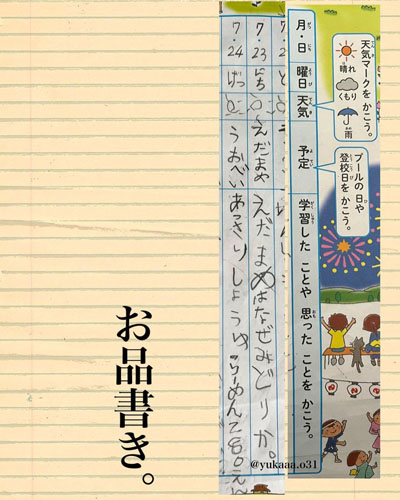 天気マークを かこう。
晴れ
くもり
雨
プールの 日や
登校日を かこう。
月・日 曜日 天気 予定 学習した ことや 思った ことを かこう。
7・23 にち えだまめ えだまめはなぜみどりか。
7・24 げつ うおべい あっさりしょうゆらーめん280えん
お品書き。
@yukaaa.o31